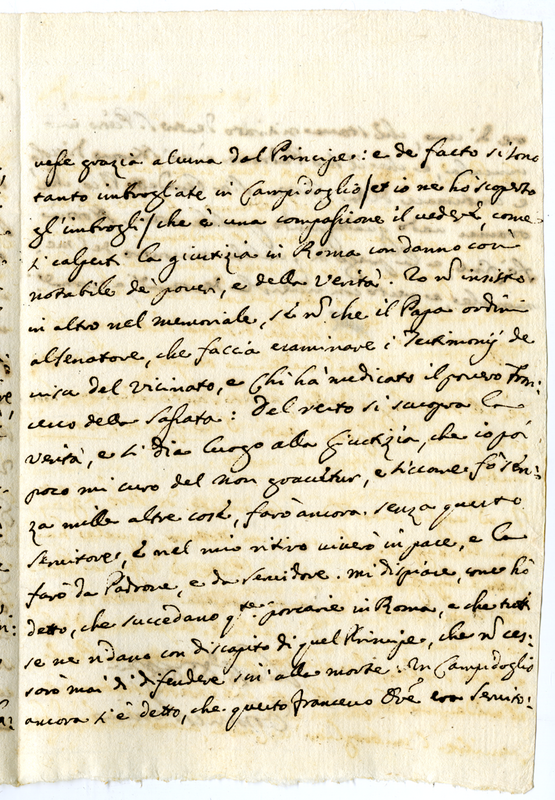 vesse grazia alcuna dal Principe: e de facto si sono
tanto imbrogliate in Campidoglio /et io ne hò scoperto
gl'imbrogli/ che è una compassione il vedere, come
si calpesti la giustizia in Roma con danno così
notabile de' poveri, e della verità. Io nõ insisto
in altro nel memoriale, se nõ che il Papa ordini
al Senatore, che faccia esaminare i Testimonij de
visu del vicinato, e chi hà medicato il povero Fran:
cesco della Sassata: Del resto si scuopra la
verità, e si dia luogo alla Giustizia, che io poi
poco mi curo del non gravetur, e siccome fò sen:
za mille altre cose, farò ancora senza questo
servitore, e nel mio ritiro viverò in pace, e la
farò da Padrone, e da Servidore. mi dispiace, come hò
detto, che succedano q.te porcarie in Roma, e che tutti
se ne ridano con discapito di quel Principe, che nõ ces:
sarò mai di difendere sin' alla morte. In Campidoglio
ancora si è detto, che questo Francesco era Servito: